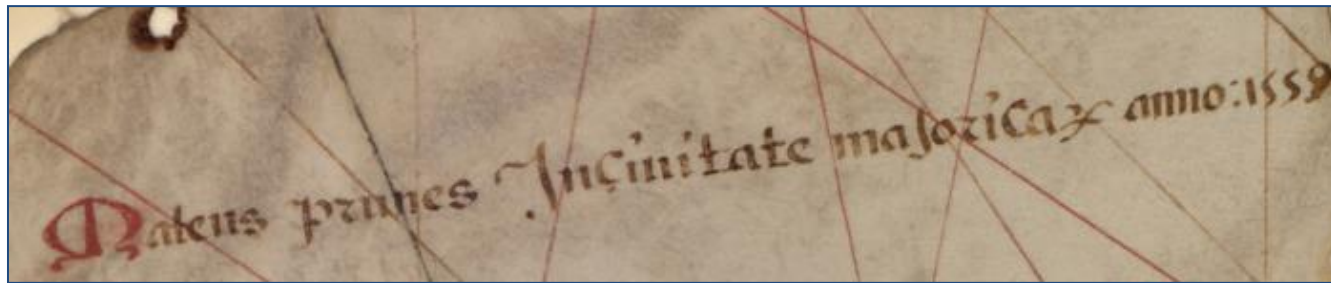 Mateus prunes Inçiuitate majoricaꝝ anno:1559